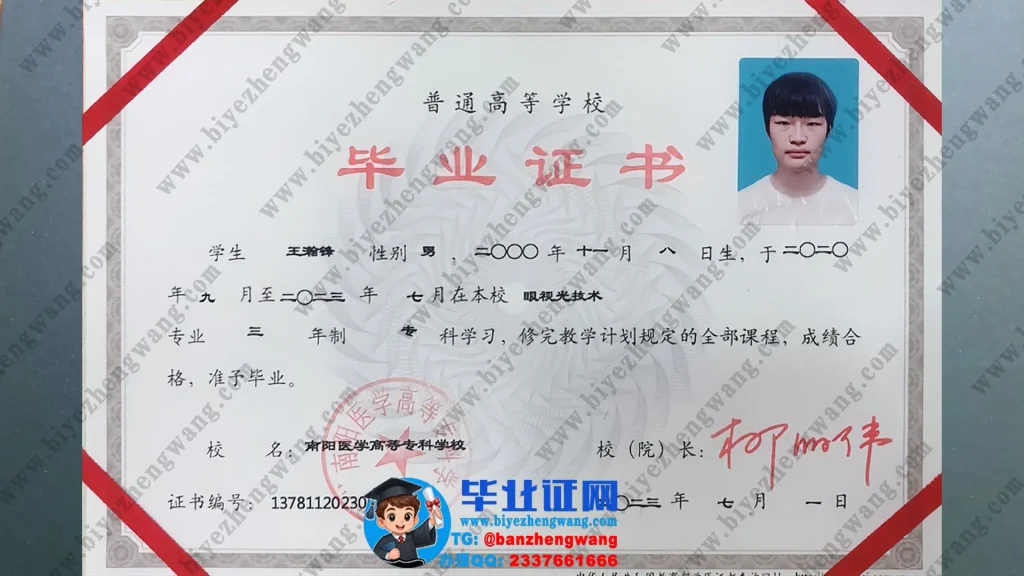 普通高等学校
毕业证书
学生 王瀚锋 性别 男 ，二〇〇〇 年 十一 月 八 日生，于 二〇二〇
年 九 月至 二〇二三 年 七 月在本校 眼视光技术
专业 三 年制 专 科学习，修完教学计划规定的全部课程，成绩合
格，准予毕业。
南阳医学高等专科学校
校 名：南阳医学高等专科学校
校（院）长：
证书编号：1378112023
〇二三 年 七 月 一 日
毕业证网
www.biyezhengwang.com
TG: @banzhengwang
QQ: 2337661666
www.biyezhengwang.com